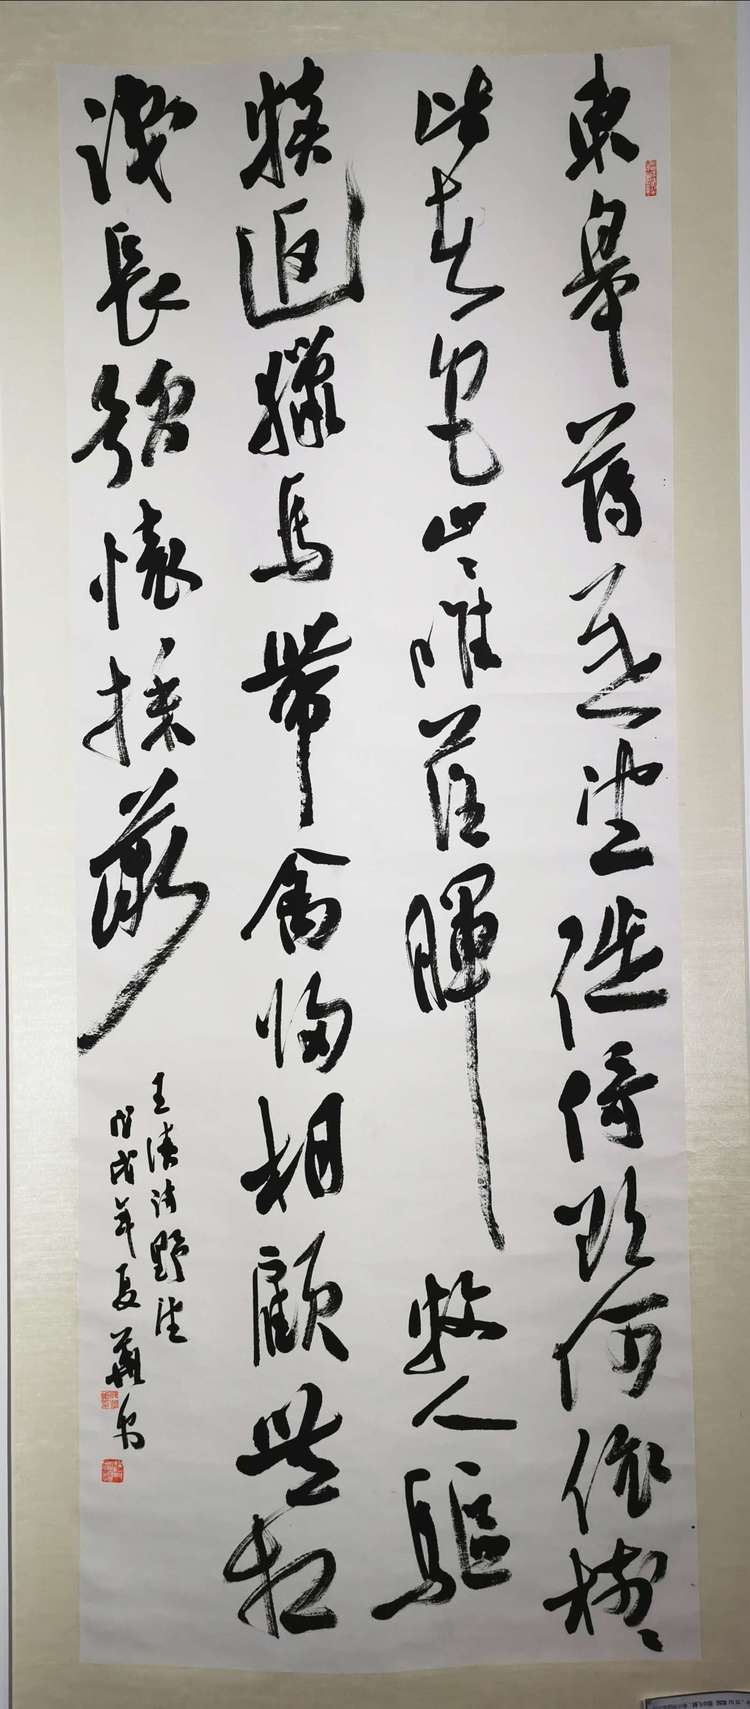 東皋薄暮望徙倚欲何依樹〻
皆秋色山〻唯落暉牧人驅
犢返獵馬帶禽歸相顧無相
識長歌懷採薇
王績詩野望
戊戌年夏